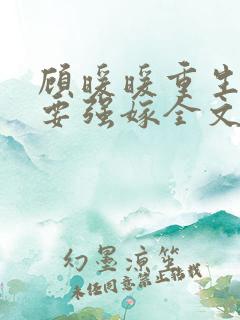 顾暖暖重生
要强嫁全文
幻墨凉笙
未经同意禁止搭我